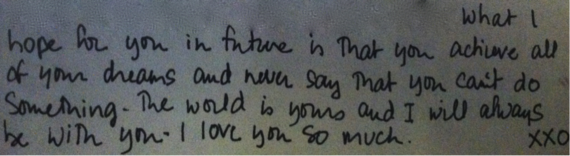 What I
hope for you in future is That you achieve all
of your dreams and never say That you can't do
Something. The world is yours and I will always
be with you. I love you so much. xxo